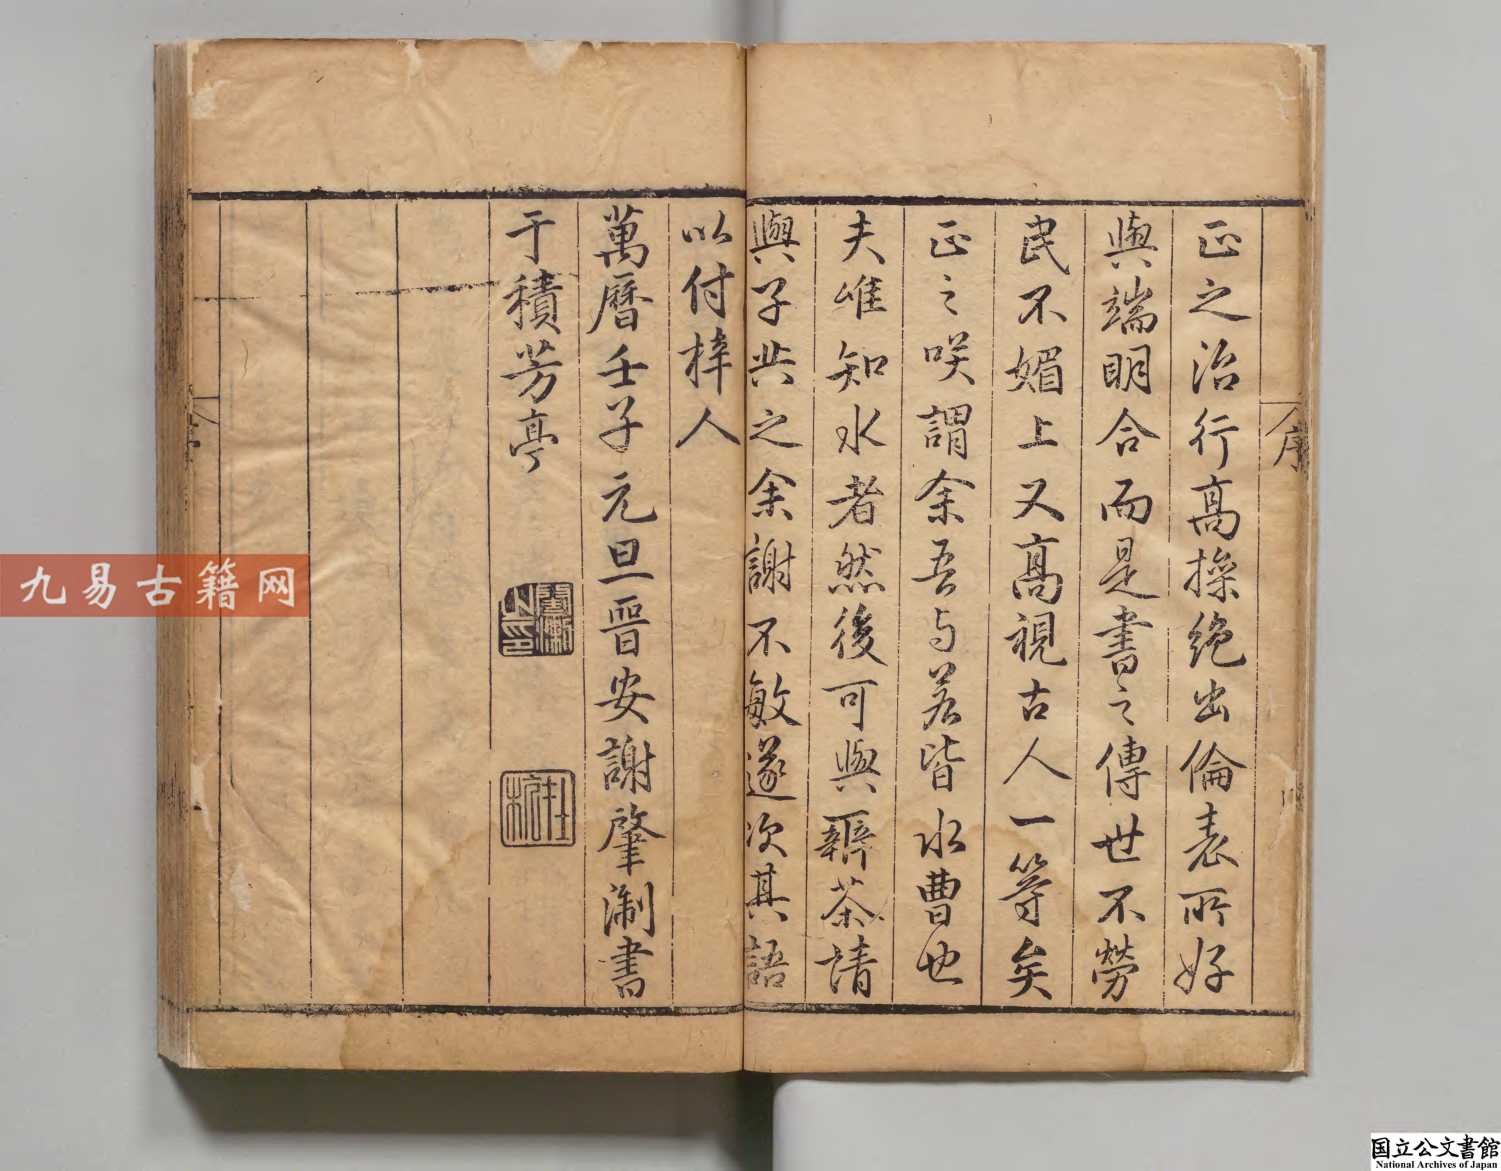 正之治行高操絶出倫表所好
與端明合而是書之傳世不勞
民不媚上又高視古人一等矣
正之咲謂余吾与若皆水曹也
夫唯知水者然後可與辯茶請
與子共之余謝不敏遂次其語
以付梓人
萬曆壬子元旦晉安謝肇淛書
于積芳亭
序
九易古籍网
国立公文書館
National Archives of Japan